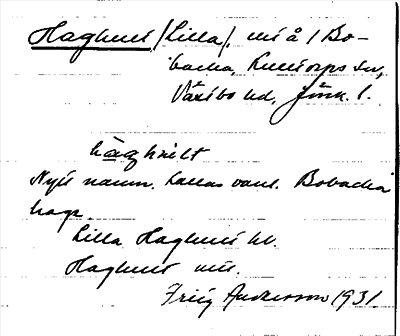 Haghult (Lilla), nit å 1 Bo-
backa, Kulltorps sn,
Västbo hd, Jönk. l.
hághult
Nytt namn. Kallas vanl. Bobacka
hage
Lilla Haghult hl.
Haghult nit.
Frig Andersson 1931